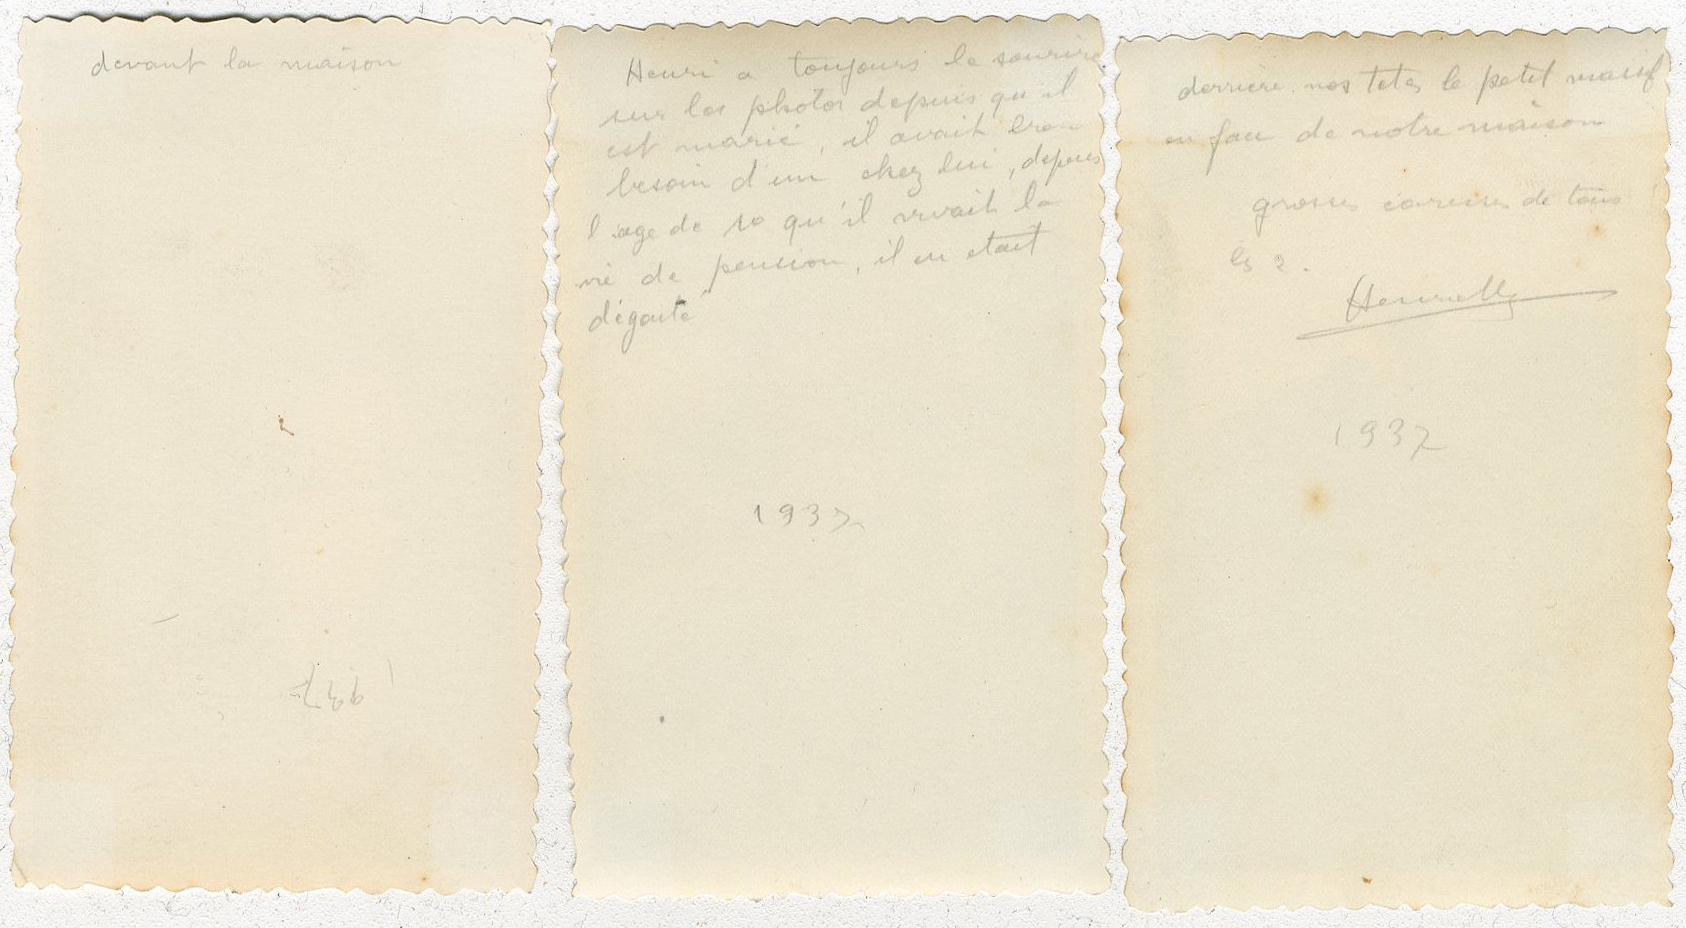 devant la maison
1937
Henri a toujours le sourire
sur les photos depuis qu'il
est marié, il avait
besoin d'un chez lui, depuis
l'age de 10 qu'il vivait la
vie de pension, il en etait
dégouté
1937
derrière nos tetes le petit massif
en face de notre maison
grosses caresses de tous
les 2.
Henriette
1937